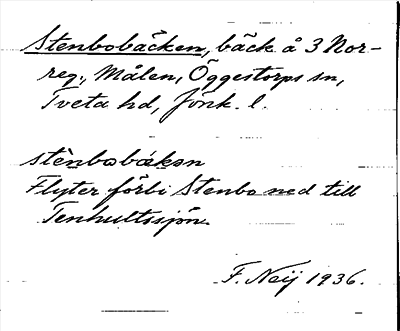 Stenbobäcken, bäck å 3 Nor-
reg., Målen, Öggestorps sn,
Tveta hd, Jönk. l.
stènbobäkən
Flyter förbi Stenbo ned till
Tenhultssjön
F. Neij 1936.